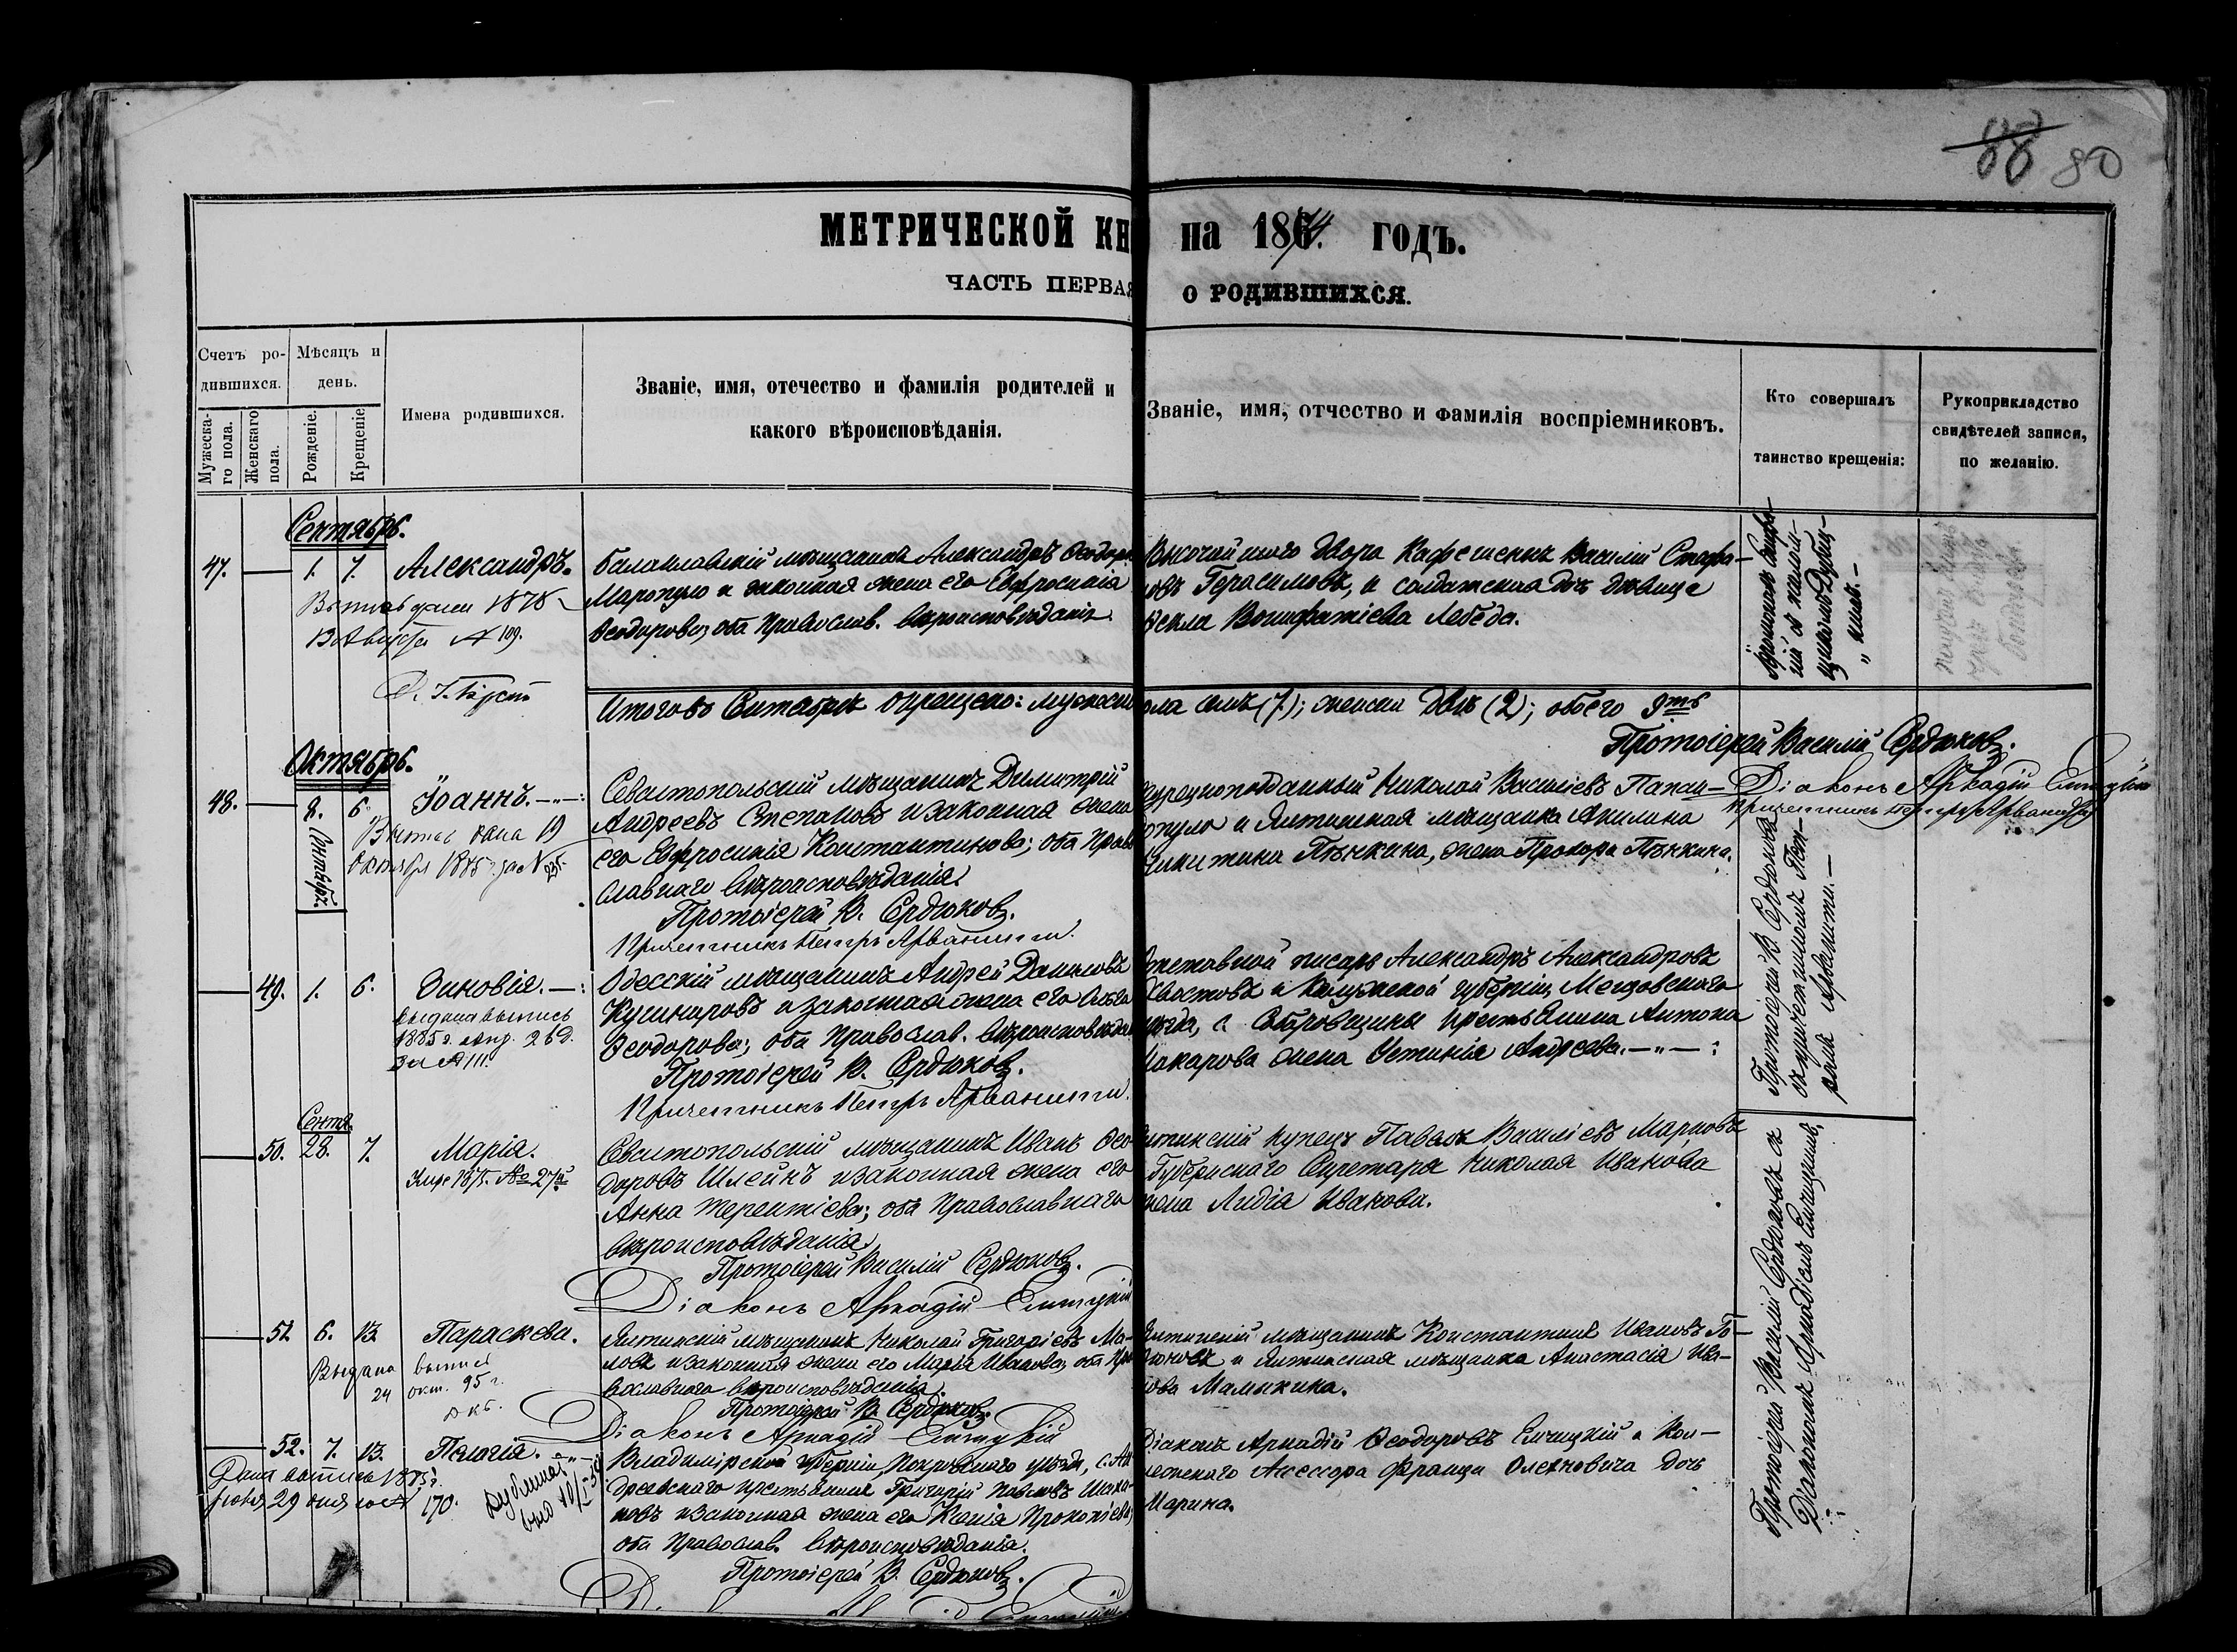 88 80
МЕТРИЧЕСКОЙ КН на 1874. ГОДЪ.
ЧАСТЬ ПЕРВАЯ о РОДИВШИХСЯ.
Счетъ ро-
дившихся.
Мужеска-
го пола.
Женскаго
пола.
Мѣсяцъ и
день.
Рожденіе.
Крещеніе
Имена родившихся.
Званіе, имя, отечество и фамилія родителей и
какого вѣроисповѣданія.
Званіе, имя, отчество и фамилія воспріемниковъ.
Кто совершалъ
таинство крещенія:
Рукоприкладство
свидѣтелей записи,
по желанію.
Сентябрь.
47. 1. 7. Александръ.
1878
№ 109.
Балаклавскій мѣщанинъ Александръ Ѳеодор
Маропуло и законная жена его Евфросинія
Ѳеодорова; оба Православ. вѣроисповѣданія.
Высочайшаго Двора Кафешенкъ Василій Стефа-
новъ Герасимовъ, и солдатская дочь дѣвица
Ѳекла Вонифатіева Лебеда.
Итого въ Сентябрѣ окрещено: мужеска
пола семь (7); женска двѣ (2); обоего 9ть
Протоіерей Василій Сердюковъ.
Октябрь.
48. 8. 6. Іоаннъ.
Сентябрь.
Октября 1885 г. за № 235.
Севастопольскій мѣщанинъ Димитрій
Андреевъ Степановъ и законная жена
его Евфросинія Константинова; оба Право
славнаго вѣроисповѣданія.
Протоіерей В. Сердюковъ.
Причетникъ Петръ Арванити.
Турецкоподданный Николай Васильевъ Папан-
опуло и Ялтинская мѣщанка Акилина
Никитина Пѣнкина, жена Прохора Пѣнкина.
Діаконъ Аркадій
Причетникъ Петръ Арванити
49. 1. 6. Зиновія.
Выдана выпись
1885 г. Апр. 26 д.
За № 111.
Одесскій мѣщанинъ Андрей Даниловъ
Кушнировъ и законная жена его Ольга
Ѳеодорова; оба Православ. вѣроисповѣдан
Протоіерей В. Сердюковъ.
Причетникъ Петръ Арванити.
писарь Александръ Александровъ
Хвостовъ и Калужской губерніи, Мещовскаго
уѣзда, с. крестьянина Антона
Макарова жена Устинія Андреева.
Протоіерей В. Сердюковъ
съ причетникомъ Пет-
ромъ Арванити.
Сентя.
50. 28. 7. Марія.
1875. № 27й
Севастопольскій мѣщанинъ Иванъ Ѳео
доровъ Шлейнъ и законная жена его
Анна Терентіева; оба Православнаго
вѣроисповѣданія.
Протоіерей Василій Сердюковъ.
Діаконъ Аркадій
Ялтинскій купецъ Павелъ Васильевъ Марковъ
Губернскаго Секретаря Николая Иванова
жена Лидія Иванова.
Протоіерей Василій Сердюковъ съ
Діакономъ Аркадіемъ
51. 6. 13. Параскева.
Выдана выпись
24 окт. 95 г.
Ялтинскій мѣщанинъ Николай Григоріевъ Ма-
ловъ и законная жена его Марія Иванова; оба Пра
вославнаго вѣроисповѣданія.
Протоіерей В. Сердюковъ.
Діаконъ Аркадій
Ялтинскій мѣщанинъ Константинъ Ивановъ
и Ялтинская мѣщанка Анастасія Ива-
нова Малыкина.
52. 7. 13. Пелагія.
Дана выпись 1885 г.
29 дня 170.
Владимірской губерніи, Покровскаго уѣзда, с. Ан
дреевскаго крестьянинъ Григорій Павловъ
новъ и законная жена его Ксенія Прокопіева
оба Православ. вѣроисповѣданія.
Протоіерей В. Сердюковъ.
Діаконъ Аркадій Ѳеодоровъ и Кол-
лежскаго Ассесора Франца дочь
Марина.